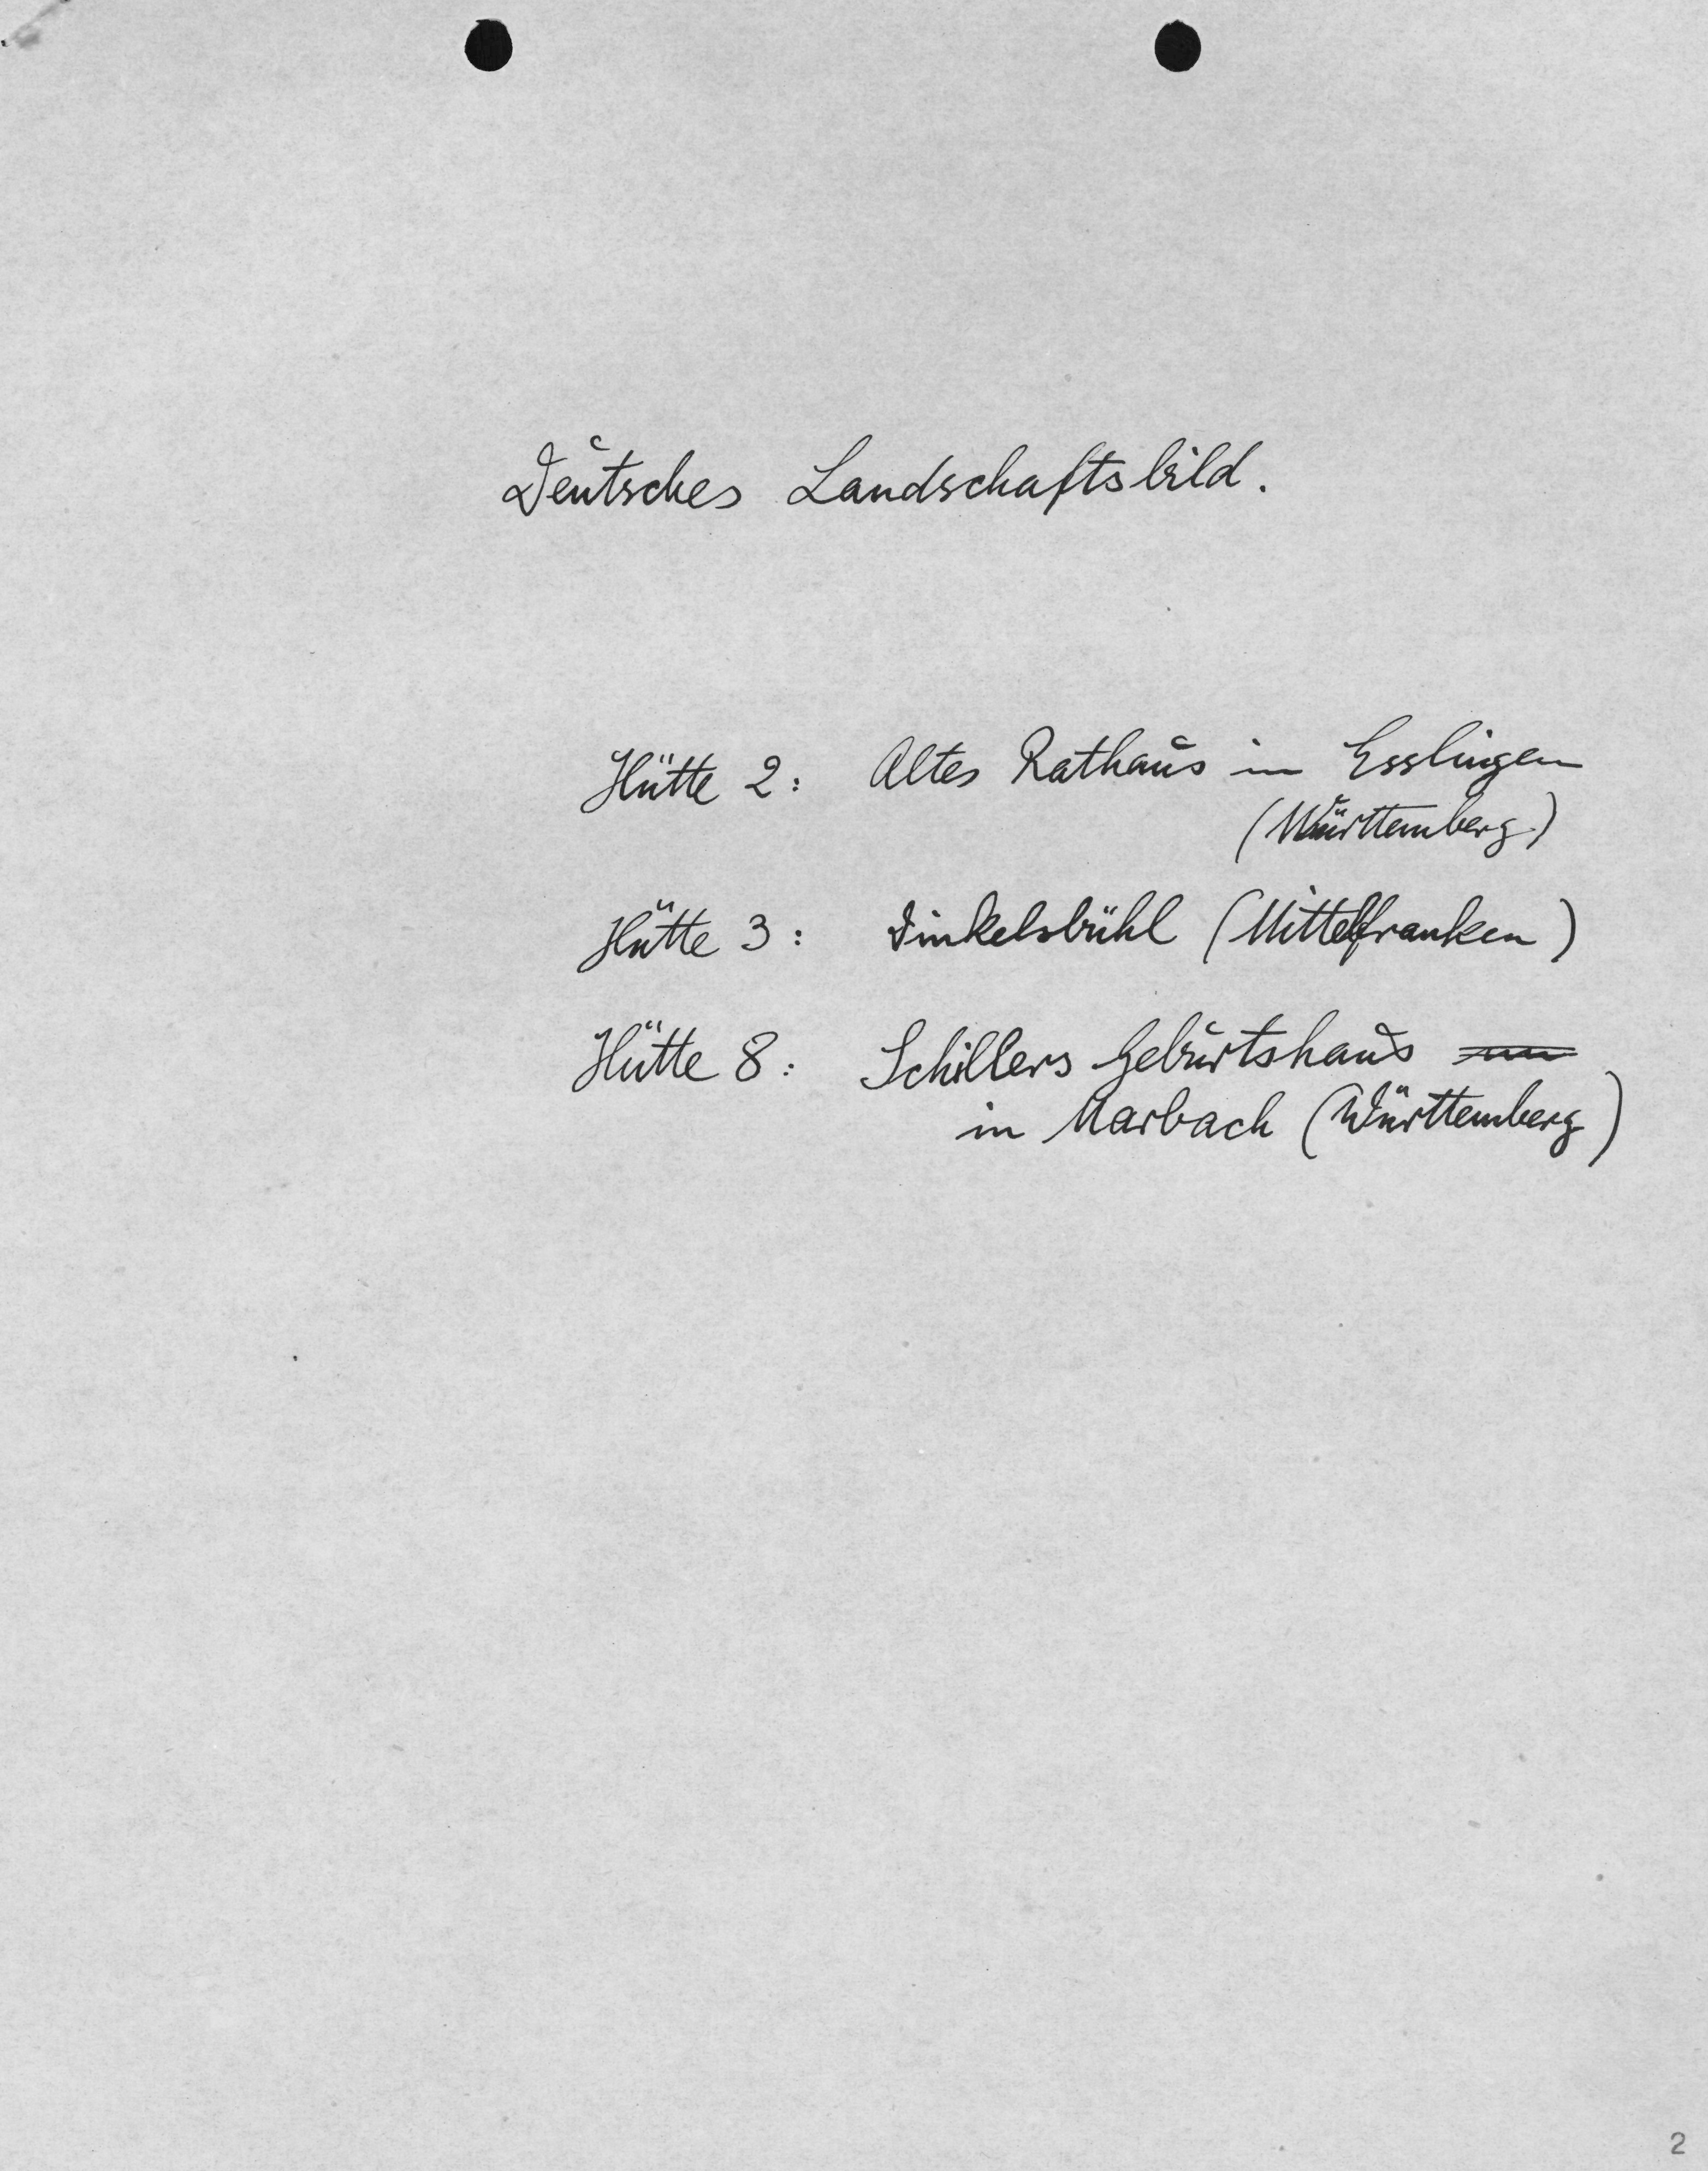 Deutsches Landschaftsbild.
Hütte 2: Altes Rathaus in Esslingen
(Württemberg)
Hütte 3: Dinkelsbühl (Mittelfranken)
Hütte 8: Schillers Geburtshaus
in Marbach (Württemberg)
2